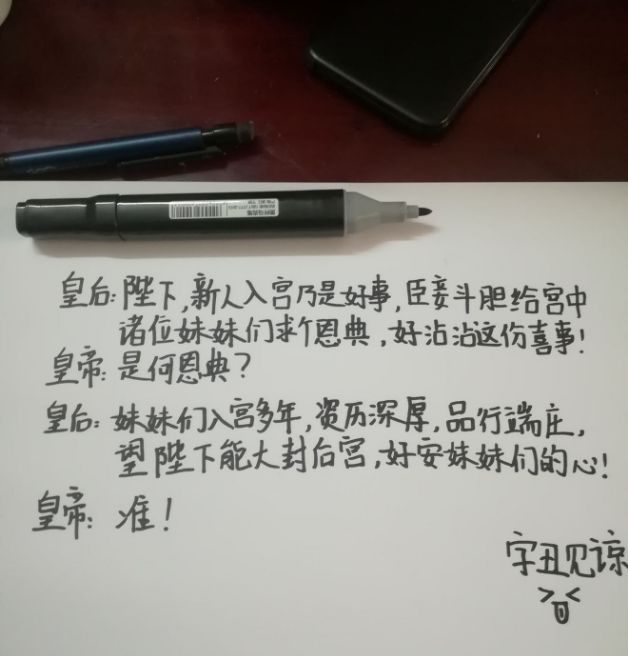 皇后：陛下，新人入宫乃是好事，臣妾斗胆给宫中
诸位妹妹们求个恩典，好沾沾这份喜事！
皇帝：是何恩典？
皇后：妹妹们入宫多年，资历深厚，品行端庄，
望陛下能大封后宫，好安妹妹们的心！
皇帝：准！
字丑见谅